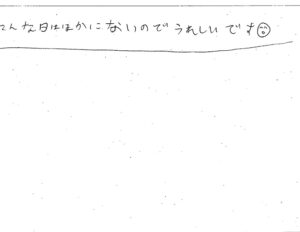 こんな日はほかにないのでうれしいです☺